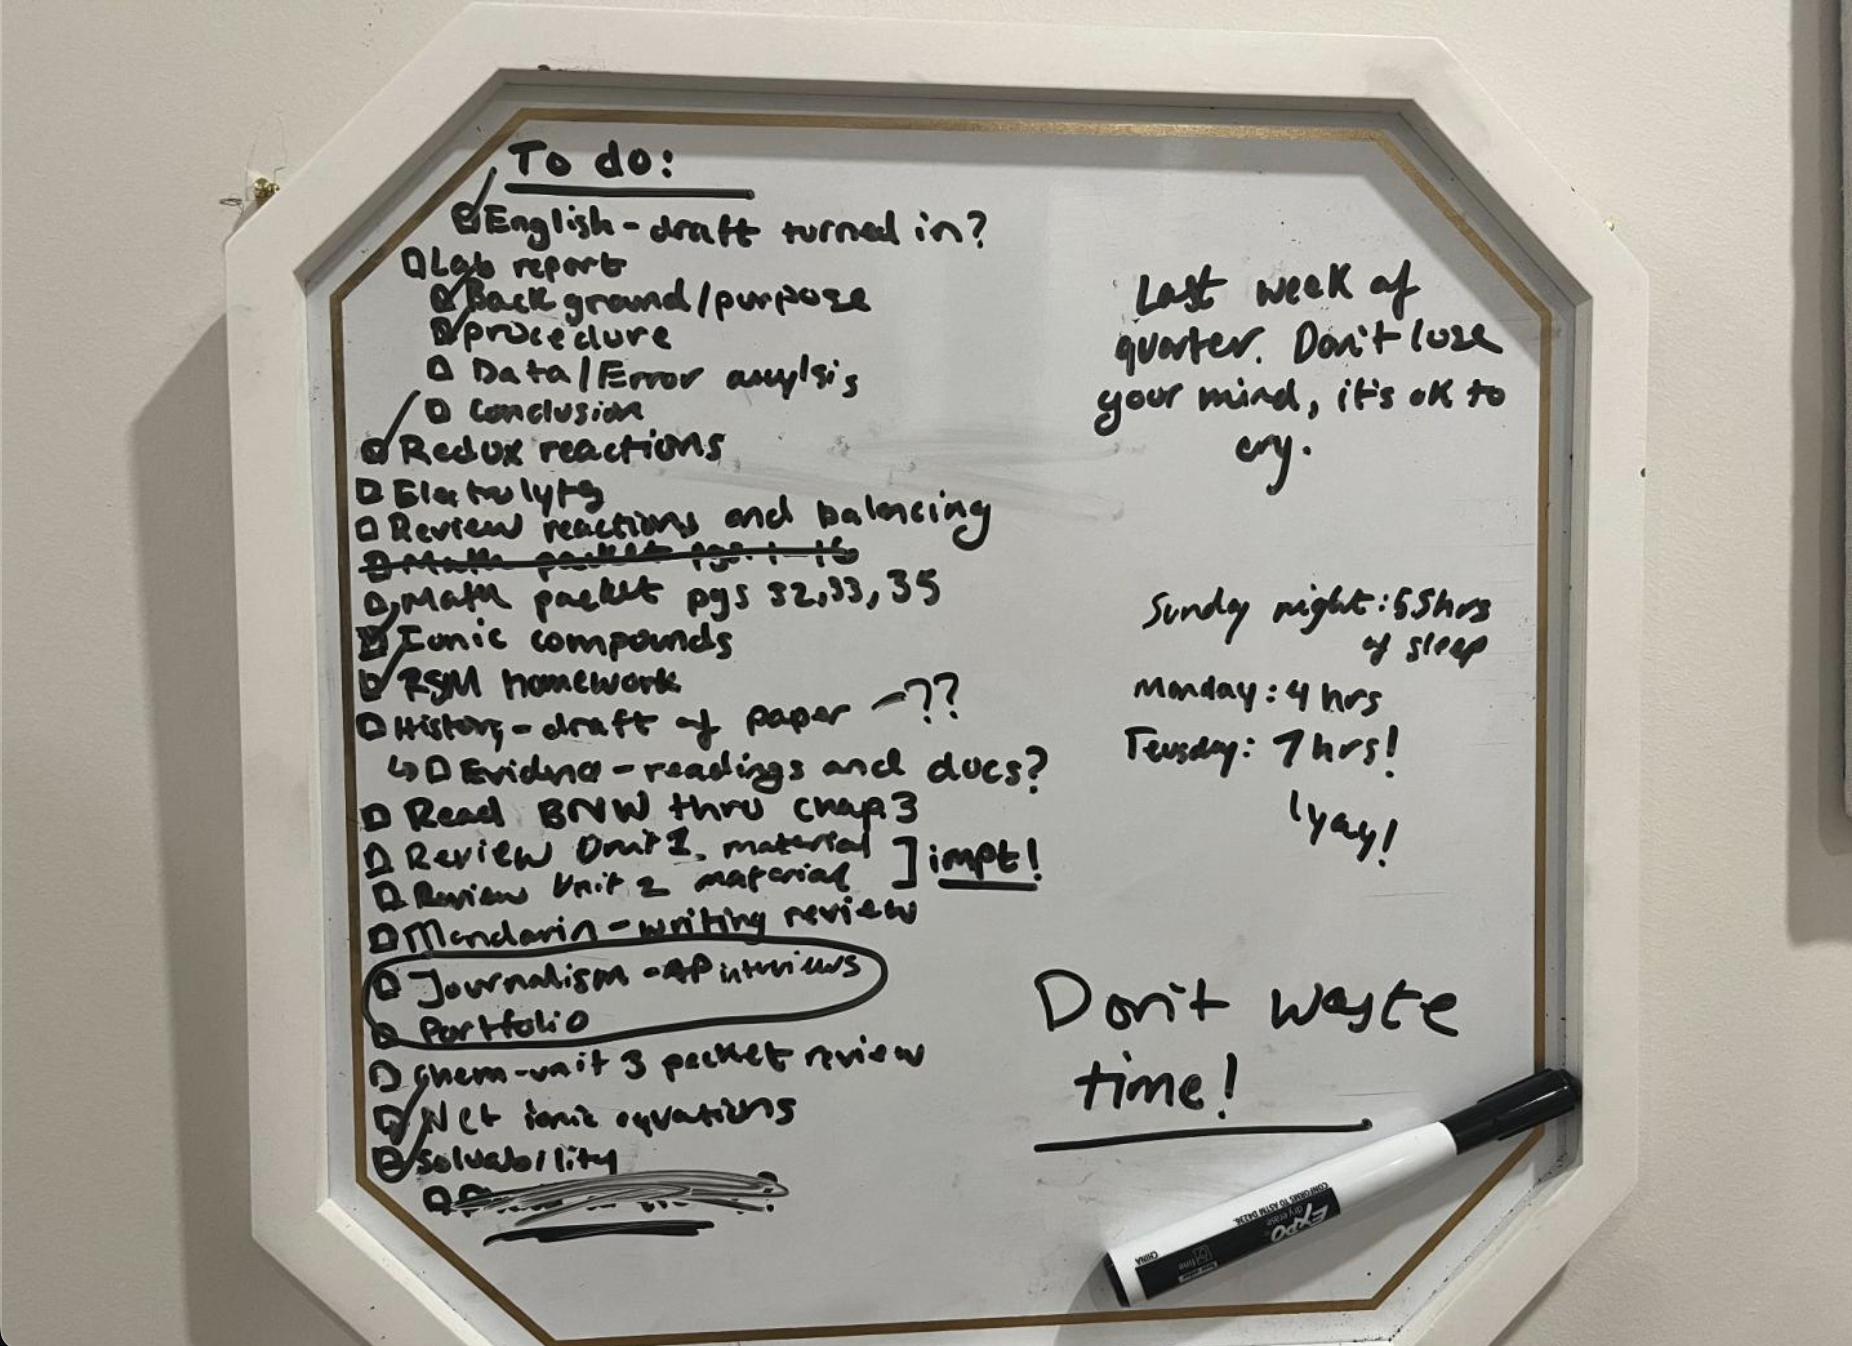 To do:
English - draft turned in?
Lab report
Background/purpose
procedure
Data/Error anylsis
Conclusion
Redox reactions
Electrolyts
Review reactions and balancing
Math packet pgs. 1-16
Math packet pgs 32,33,35
Ionic compounds
RSM homework
History - draft of paper - ??
Evidence - readings and docs?
Read BNW thru chap 3
Review Unit 1 material
Review Unit 2 material
impt!
Mandarin - writing review
Journalism - AP interviews
Portfolio
Chem - unit 3 packet review
Net ionic equations
Soluability
Last week of
quarter. Don't lose
your mind, it's ok to
cry.
Sunday night: 5.5hrs
of sleep
Monday: 4 hrs
Teusday: 7 hrs!
yay!
Don't waste
time!
CONFORMS TO ASTM D4236
EXPO
dry erase
fine
CHINA